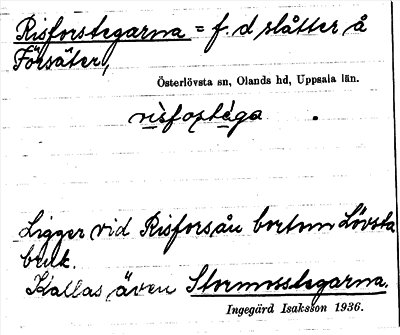 Risforstegarna = f. d slåtter å
Försäter,
Österlövsta sn, Olands hd, Uppsala län.
Ligger vid Risforsån bortom Lövsta
bruk.
Kallas även Stormosstegarna.
Ingegärd Isaksson 1936.